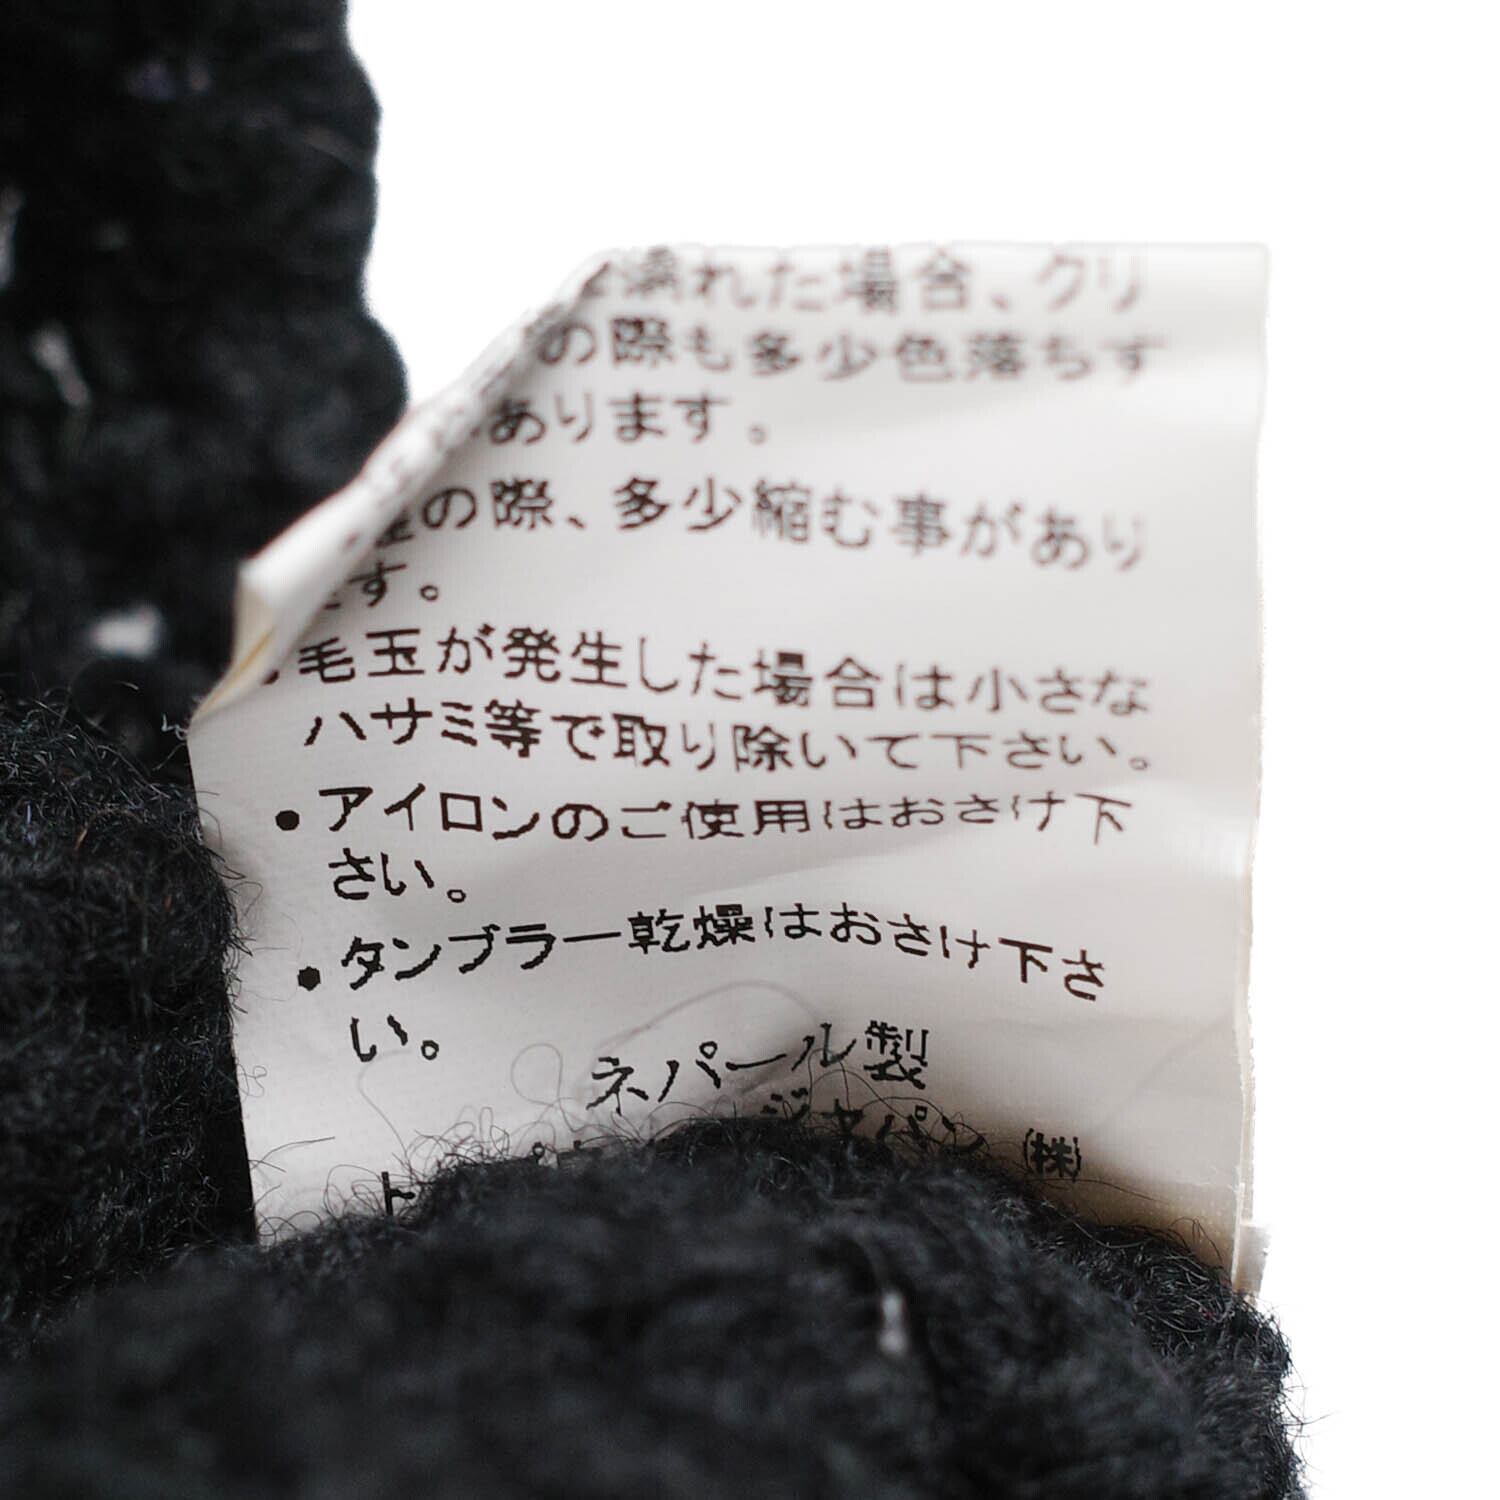 れた場合、クリ
の際も多少色落ちす
あります。
の際、多少縮む事があり
す。
毛玉が発生した場合は小さな
ハサミ等で取り除いて下さい。
• アイロンのご使用はおさけ下
さい。
• タンブラー乾燥はおさけ下さ
い。
ネパール製
ジャパン ㈱